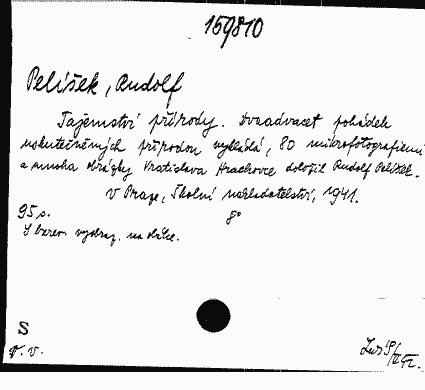 159810
Pelíšek, Rudolf
Tajemství přírody. Dvaadvacet pohádek
uskutečněných přírodou vykládá, 80 mikrofotografiemi
a mnoha obrázky Vratislava Hrachovce doložil Rudolf Pelíšek.
V Praze, Školní nakladatelství, 1941.
95 s. 8°
S barev. vyobraz. na obálce.
S
v. v.